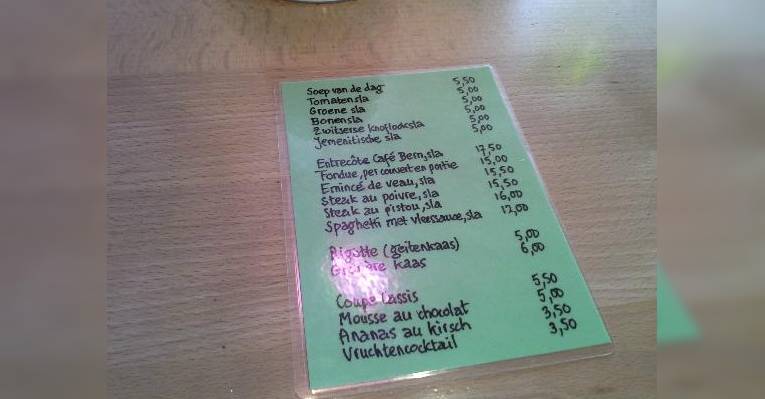 Soep van de dag 5,50
Tomatensla 5,00
Groene sla 5,00
Bonensla 5,00
Zwitserse knoflooksla 5,00
Jemenitische sla 5,00
Entrecôte Café Bern, sla 17,50
Fondue, per couvert en portie 15,00
Emincé de veau, sla 15,50
Steak au poivre, sla 15,50
Steak au pistou, sla 16,00
Spaghetti met vleessause, sla 12,00
Rigotte (geitenkaas) 5,00
Gruyère kaas 6,00
Coupe Cassis 5,50
Mousse au chocolat 5,00
Ananas au kirsch 3,50
Vruchtencocktail 3,50